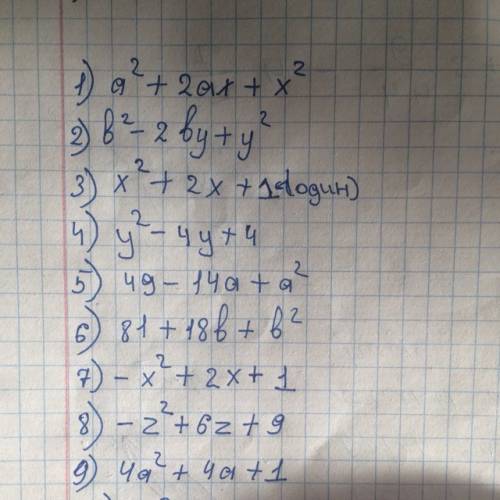 1) a² + 2ax + x²
2) b² - 2by + y²
3) x² + 2x + 1 (один)
4) y² - 4y + 4
5) 49 - 14a + a²
6) 81 + 18b + b²
7) - x² + 2x + 1
8) - z² + 6z + 9
9) 4a² + 4a + 1